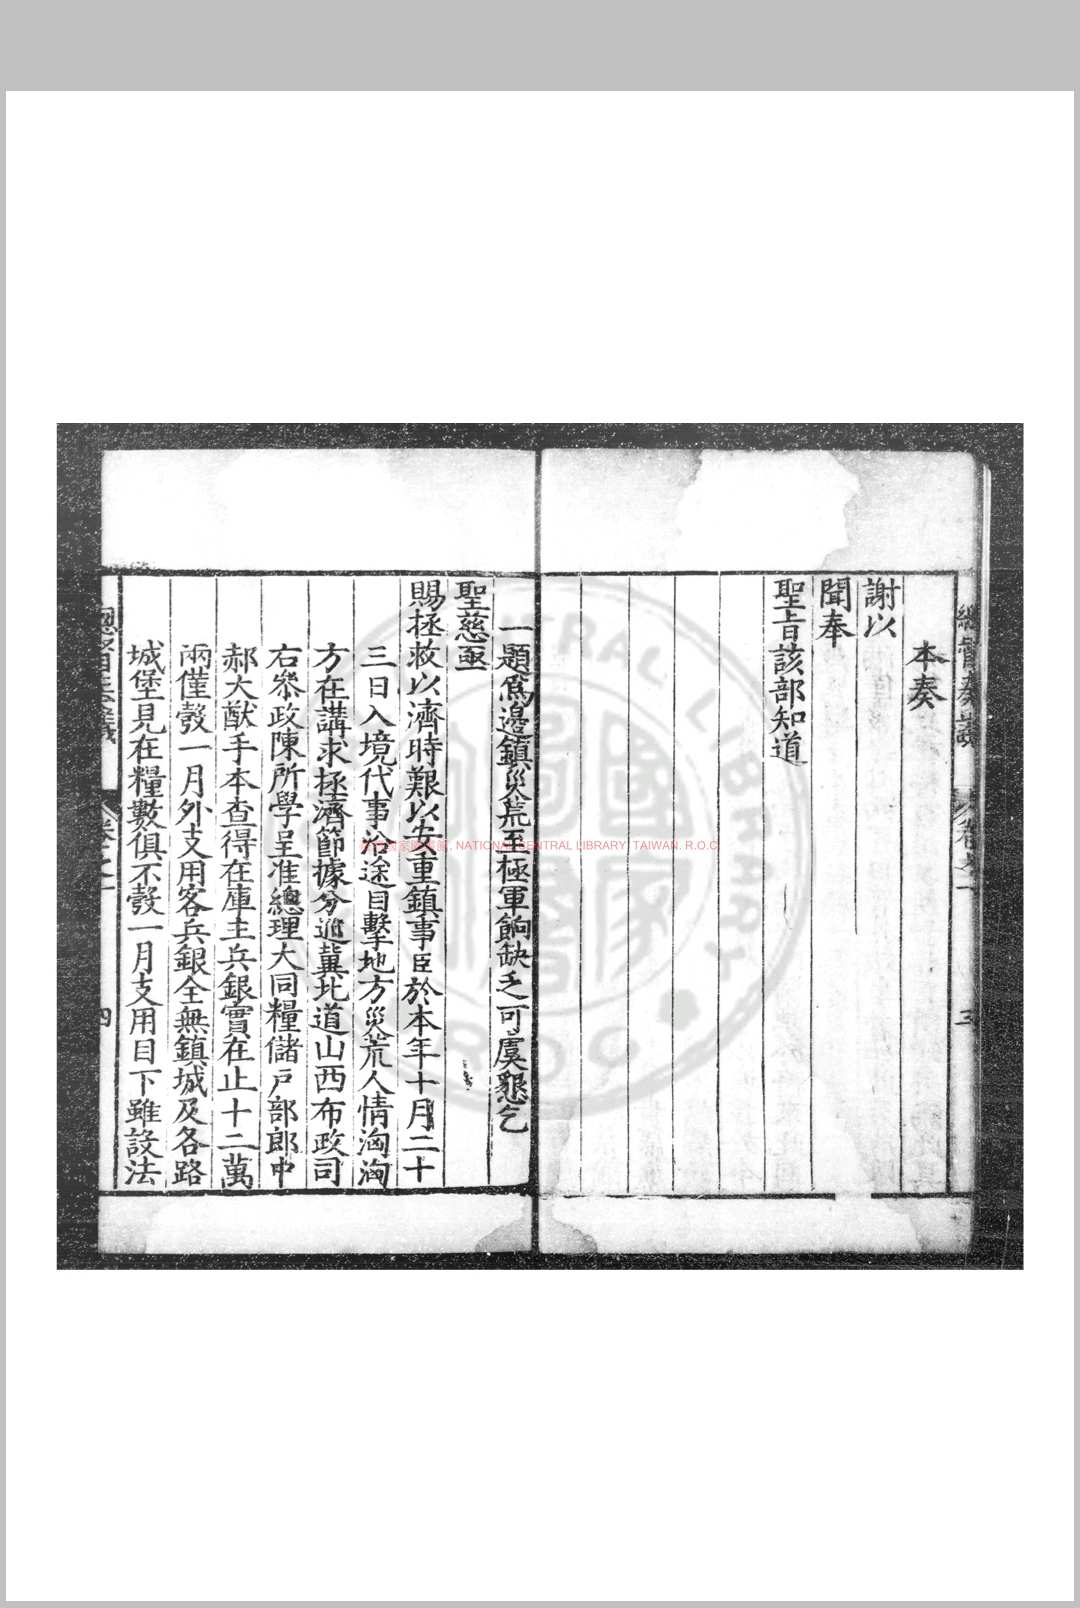 總督奏議
卷之一
三
本奏
謝以
聞奉
聖旨該部知道
一題爲邊鎮災荒至極軍餉缺乏可虞懇乞
聖慈亟
賜拯救以濟時艱以安重鎮事臣於本年十月二十
三日入境代事沿途目擊地方災荒人情洶洶
方在講求拯濟節據分巡冀北道山西布政司
右叅政陳所學呈准總理大同糧儲戶部郎中
郝大猷手本查得在庫主兵銀實在止十二萬
兩僅彀一月外支用客兵銀全無鎮城及各路
城堡見在糧數俱不彀一月支用目下雖設法
卷之一
四
NATIONAL CENTRAL LIBRARY, TAIWAN, R.O.C